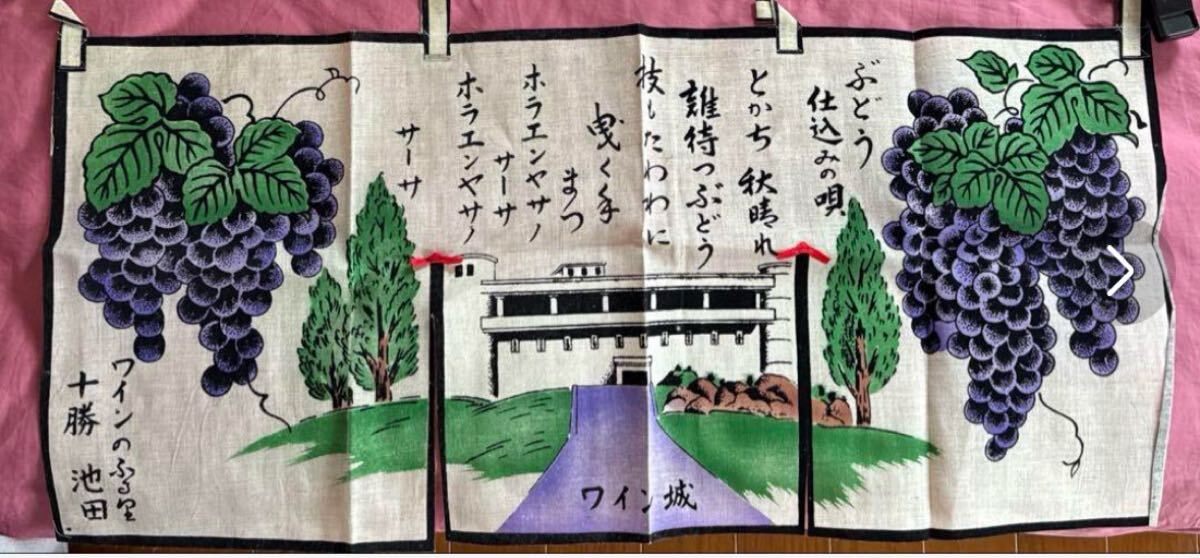 ぶどう
仕込みの唄
とかち 秋晴れ
誰待つぶどう
枝もたわわに
曳く手
まつ
ホラエンヤサノ
サーサ
ホラエンヤサノ
サーサ
ワイン城
ワインのふる里
十勝 池田